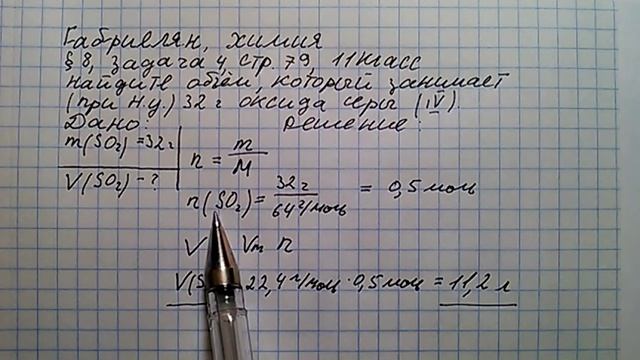 Габриелян, химия
§ 8, задача 4 стр. 79, 11 класс
найдите объём, который занимает
(при н.у.) 32 г оксида серы (IV).
Дано: Решение:
m(SO₂) = 32 г
n = m/M
V(SO₂) - ?
n(SO₂) = 32 г / 64 г/моль = 0,5 моль
V Vm n
V(S 22,4 г/моль · 0,5 моль = 11,2 л